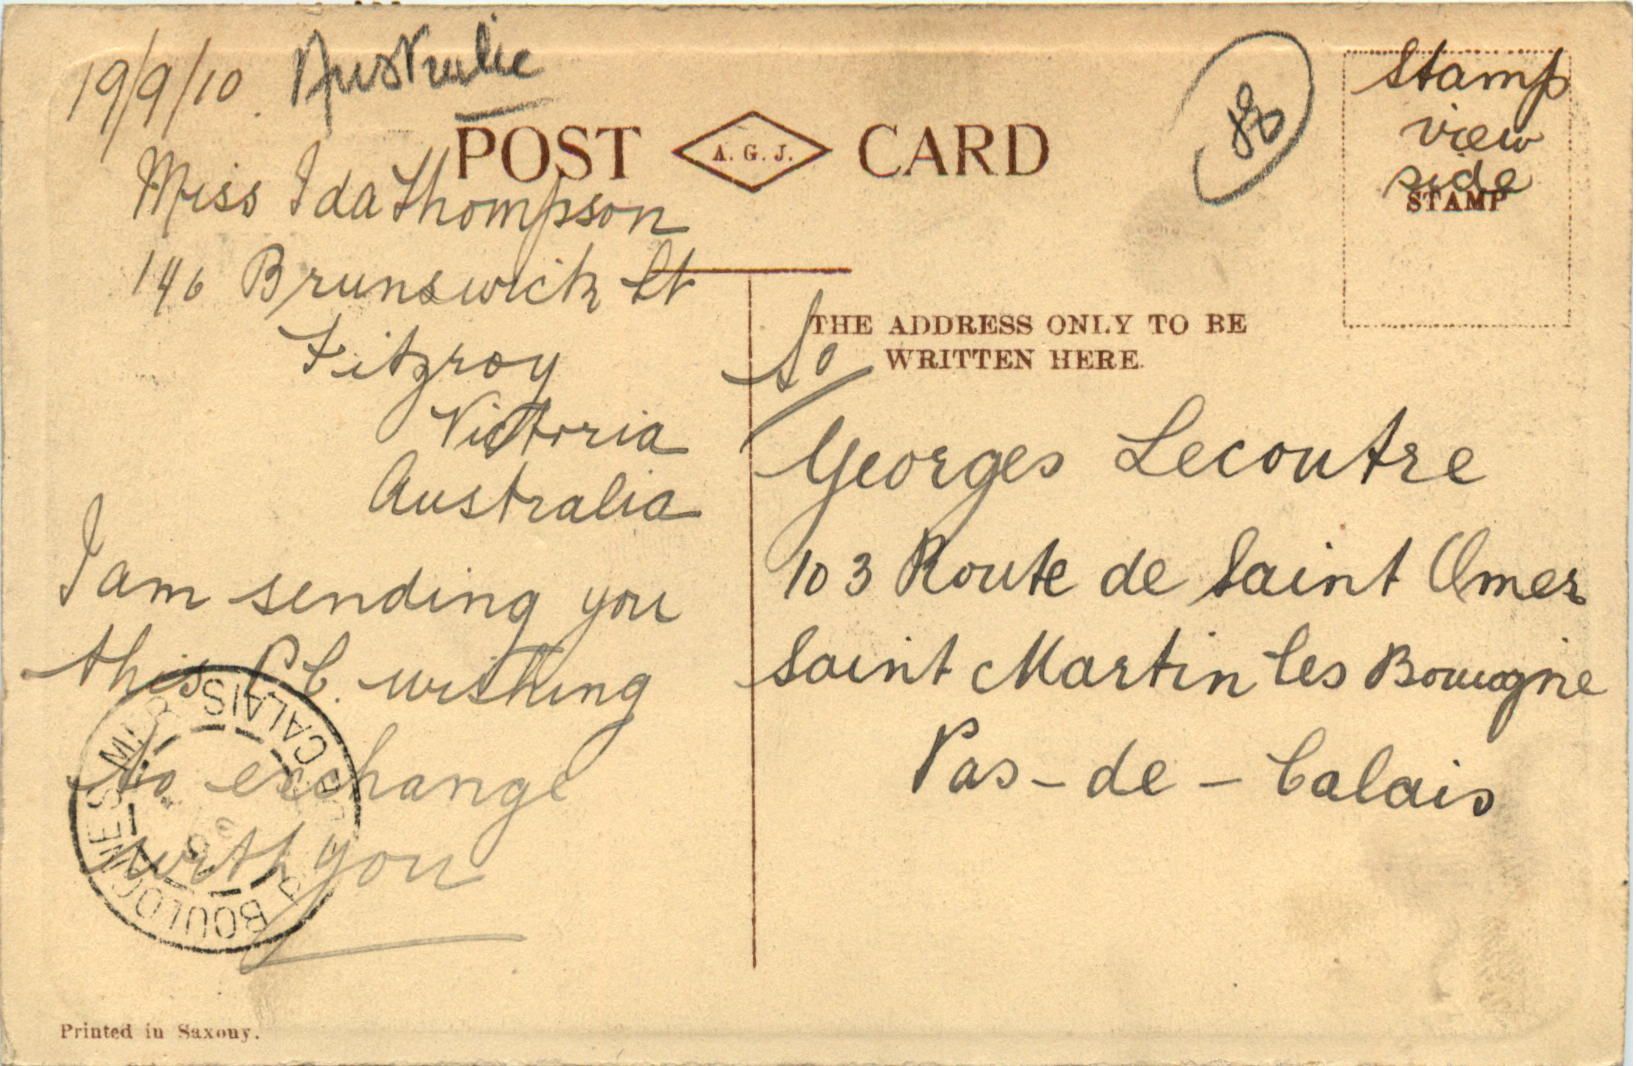 19/9/10 Australie
POST A. G. J. CARD
88
Stamp
view
side
STAMP
Miss Ida Thompson
146 Brunswick St
Fitzroy
Victoria
Australia
I am sending you
this P.C. wishing
to exchange
with you
THE ADDRESS ONLY TO BE
WRITTEN HERE.
To
Georges Lecoutre
103 Route de Saint Omer
Saint Martin les Boulogne
Pas-de-Calais
BOULOGNE S MER
P. DE CALAIS
Printed in Saxony.